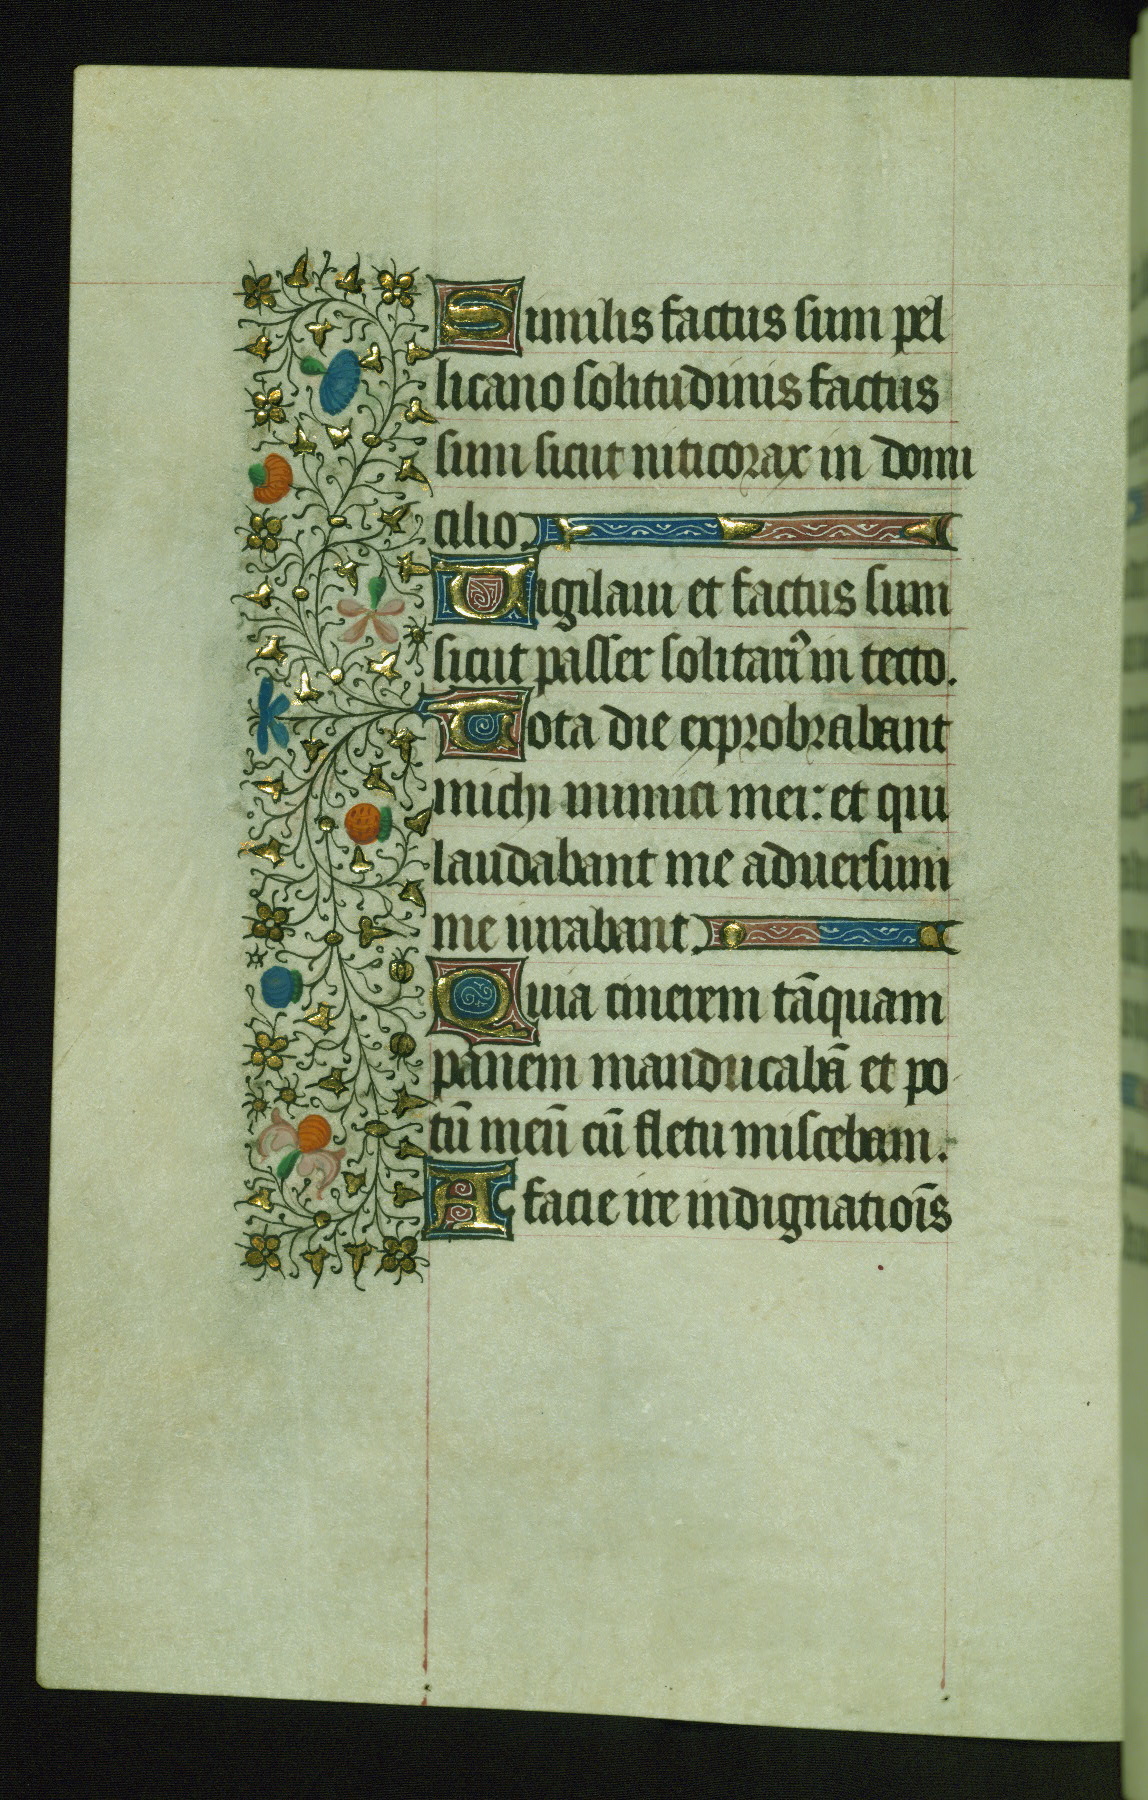 Similis factus sum pel
licano solitudinis factus
sum sicut niticorax in domi
cilio.
Uigilaui et factus sum
sicut passer solitariꝰ in tecto.
Tota die exprobrabant
michi inimici mei: et qui
laudabant me aduersum
me iurabant.
Quia cinerem tãquam
panem manducabã et po
tũ meũ cũ fletu miscebam.
A facie ire indignatiõis